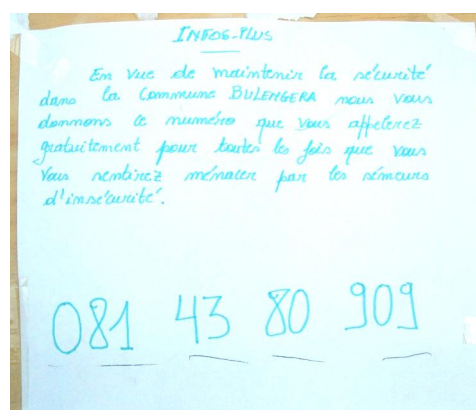 INFOS-PLUS
En vue de maintenir la sécurité
dans la Commune BULENGERA nous vous
donnons ce numéro que vous appelerez
gratuitement pour toutes les fois que vous
vous sentirez ménacer par les sémeurs
d'insécurité.
081 43 80 909